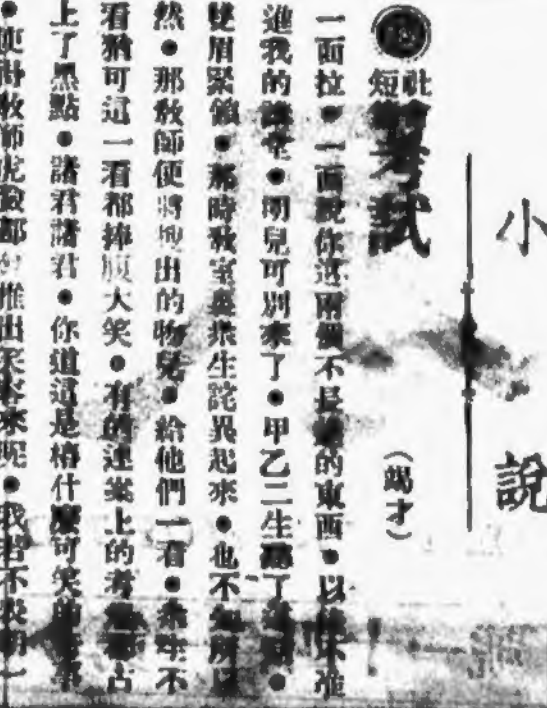 小說
社
短
考試
(竭才)
一面拉●一面說你這兩個不長的東西●以准
進我的●明兒可別來了●甲乙二生了●
雙眉緊鎖●那時教室裏衆生詫異起來●也不知所以
然●那教師便將拽出的物兒●給他們一看●衆生不
看猶可這一看都捧腹大笑●有的連案上的考都占
上了黑點●諸君諸君●你道這是樁什麼可笑的
●便是教師虎臉都推出笑容來呢●我若不表明一